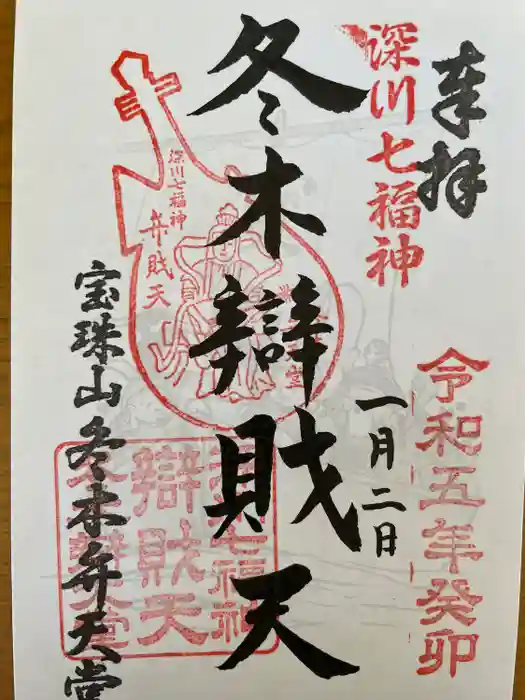 奉拝
深川七福神
令和五年癸卯
一月二日
冬木辯財天
深川七福神
弁財天
宝珠山冬木弁天堂
辯財天
七福神